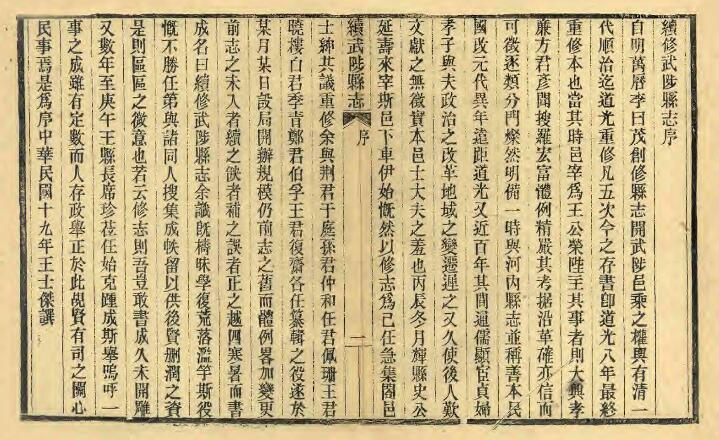 續修武陟縣志序
自明萬曆李日茂創修縣志開武陟邑乘之權輿有清一
代順治迄道光重修凡五次今之存書卽道光八年最終
重修本也當其時邑宰爲王公榮陞主其事者則大興孝
廉方君彥聞搜羅宏富體例精嚴其考据沿革確亦信而
可徵逐類分門燦然明備一時與河內縣志並稱善本民
國改元代異年遠距道光又近百年其間通儒顯宦貞婦
孝子與夫政治之改革地域之變遷遲之又久使後人歎
文獻之無徵實本邑士大夫之羞也丙辰冬月輝縣史公
延壽來宰斯邑下車伊始慨然以修志爲己任急集闔邑
續武陟縣志 序 二
士紳共議重修余與荆君千庭孫君仲和任君佩珊王君
曉樓白君季靑鄭君伯孚王君復齋各任纂輯之役遂於
某月某日設局開辦規模仍前志之舊而體例畧加變更
前志之未入者續之佚者補之誤者正之越四寒暑而書
成名曰續修武陟縣志余譾旣檮昧學復荒落濫竽斯役
慨不勝任第與諸同人搜集成帙留以供後賢刪潤之資
是則區區之微意也若云修志則吾豈敢書成久未開雕
又數年至庚午王縣長席珍莅任始克踵成斯舉嗚呼一
事之成雖有定數而人存政舉正於此覘賢有司之關心
民事焉是爲序中華民國十九年王士傑譔